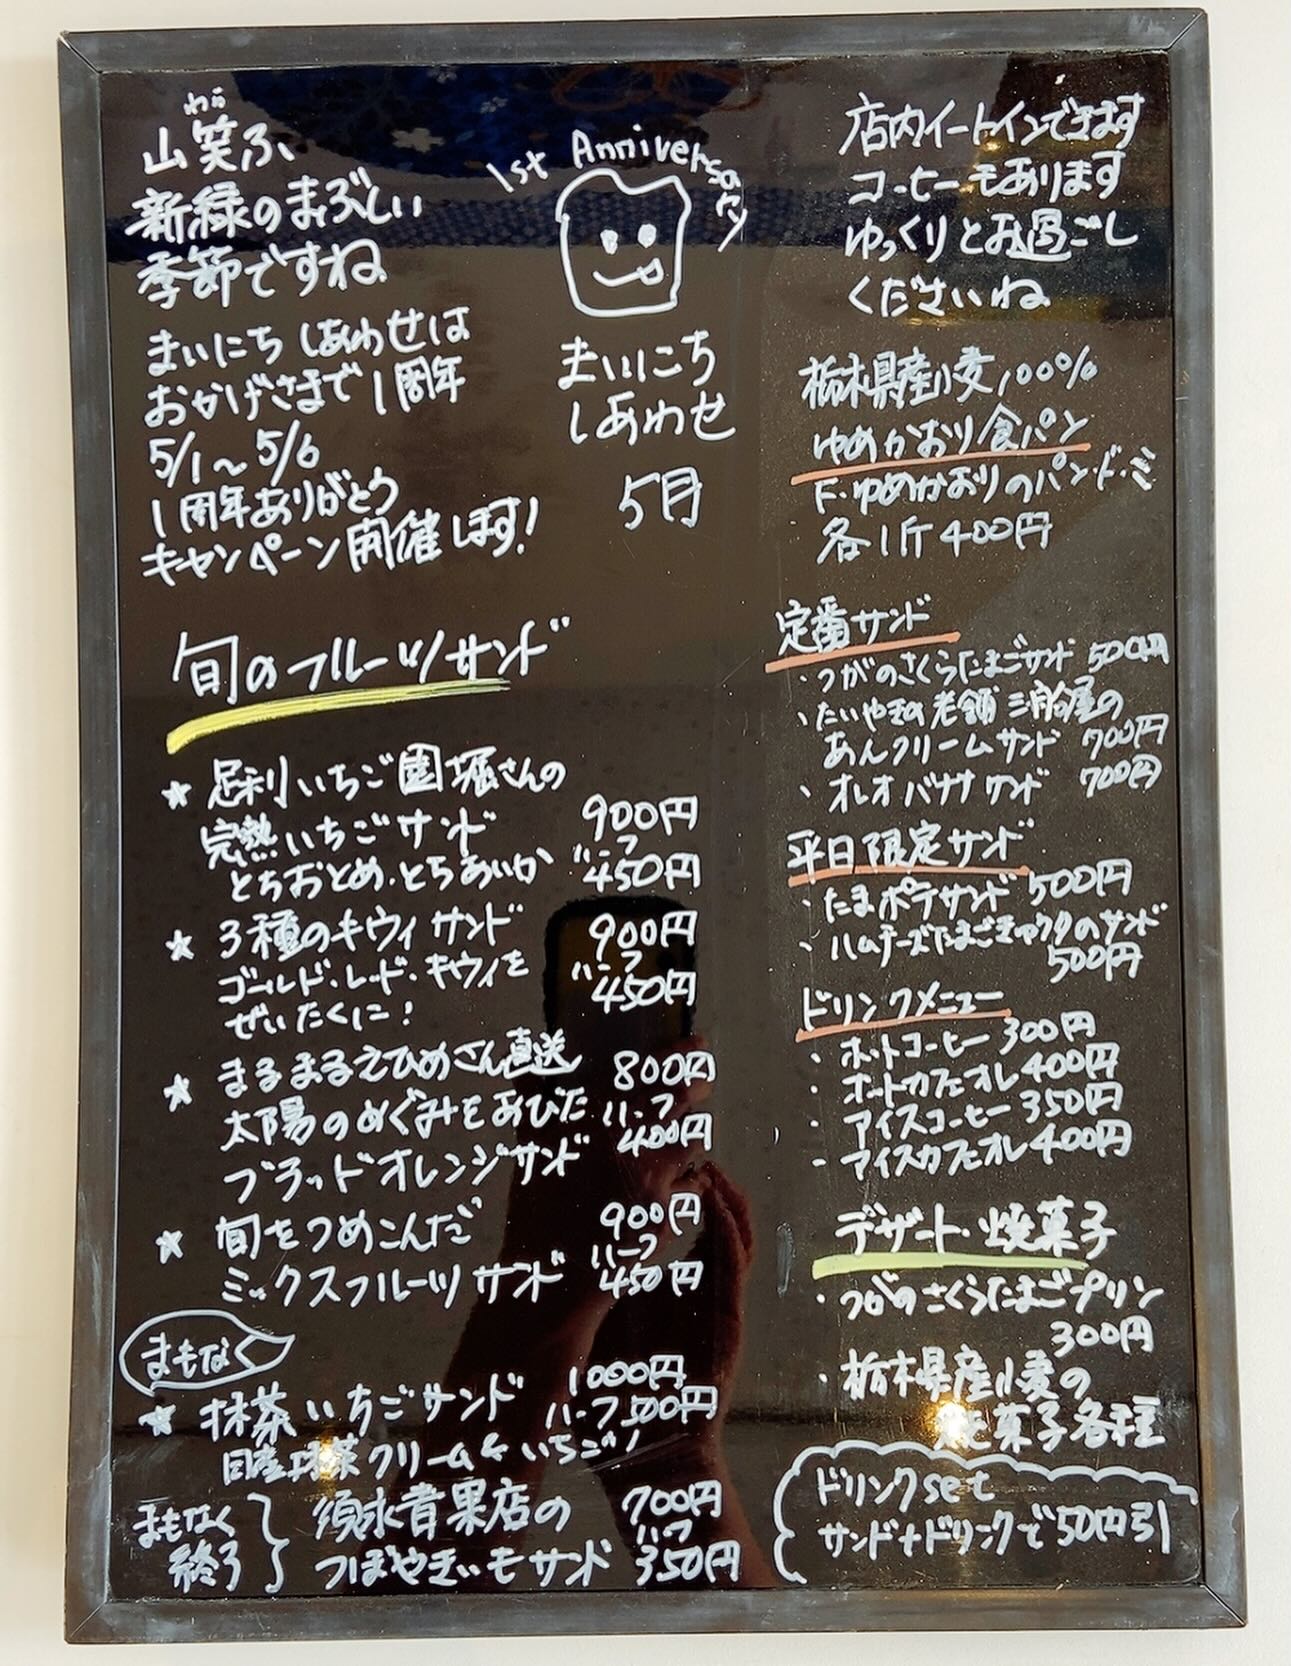 わら
山笑ふ、
新緑のまぶしい
季節ですね
まいにちしあわせは
おかげさまで1周年
5/1～5/6
1周年ありがとう
キャンペーン開催します!
1st Anniversary
まいにち
しあわせ
5月
旬のフルーツサンド
★ 足利いちご園堀さんの
完熟いちごサンド 900円
とちおとめ・とちあいか ハーフ 450円
★ 3種のキウィサンド 900円
ゴールド・レッド・キウィを ハーフ 450円
ぜいたくに!
★ まるまるえひめさん直送 800円
太陽のめぐみをあびた ハーフ 400円
ブラッドオレンジサンド
★ 旬をつめこんだ 900円
ミックスフルーツサンド ハーフ 450円
まもなく
★ 抹茶いちごサンド 1000円
ハーフ 500円
国産抹茶クリーム&いちご!
まもなく
終了
須永青果店の 700円
つぼやきいもサンド ハーフ 350円
店内イートインできます
コーヒーもあります
ゆっくりとお過ごし
くださいね
栃木県産小麦100%
ゆめかおり食パン
ド・ゆめかおりのパン・ド・ミ
各1斤400円
定番サンド
・つがのさくらたまごサンド 500円
・たいやきの老舗 三船屋の
あんクリームサンド 700円
・オレオバナナサンド 700円
平日限定サンド
・たまポテサンド 500円
・ハムチーズたまごきゅうりのサンド
500円
ドリンクメニュー
・ホットコーヒー 300円
・ホットカフェオレ 400円
・アイスコーヒー 350円
・アイスカフェオレ 400円
デザート・焼菓子
・つがのさくらたまごプリン
300円
・栃木県産小麦の
焼菓子各種
ドリンクset
サンド+ドリンクで50円引